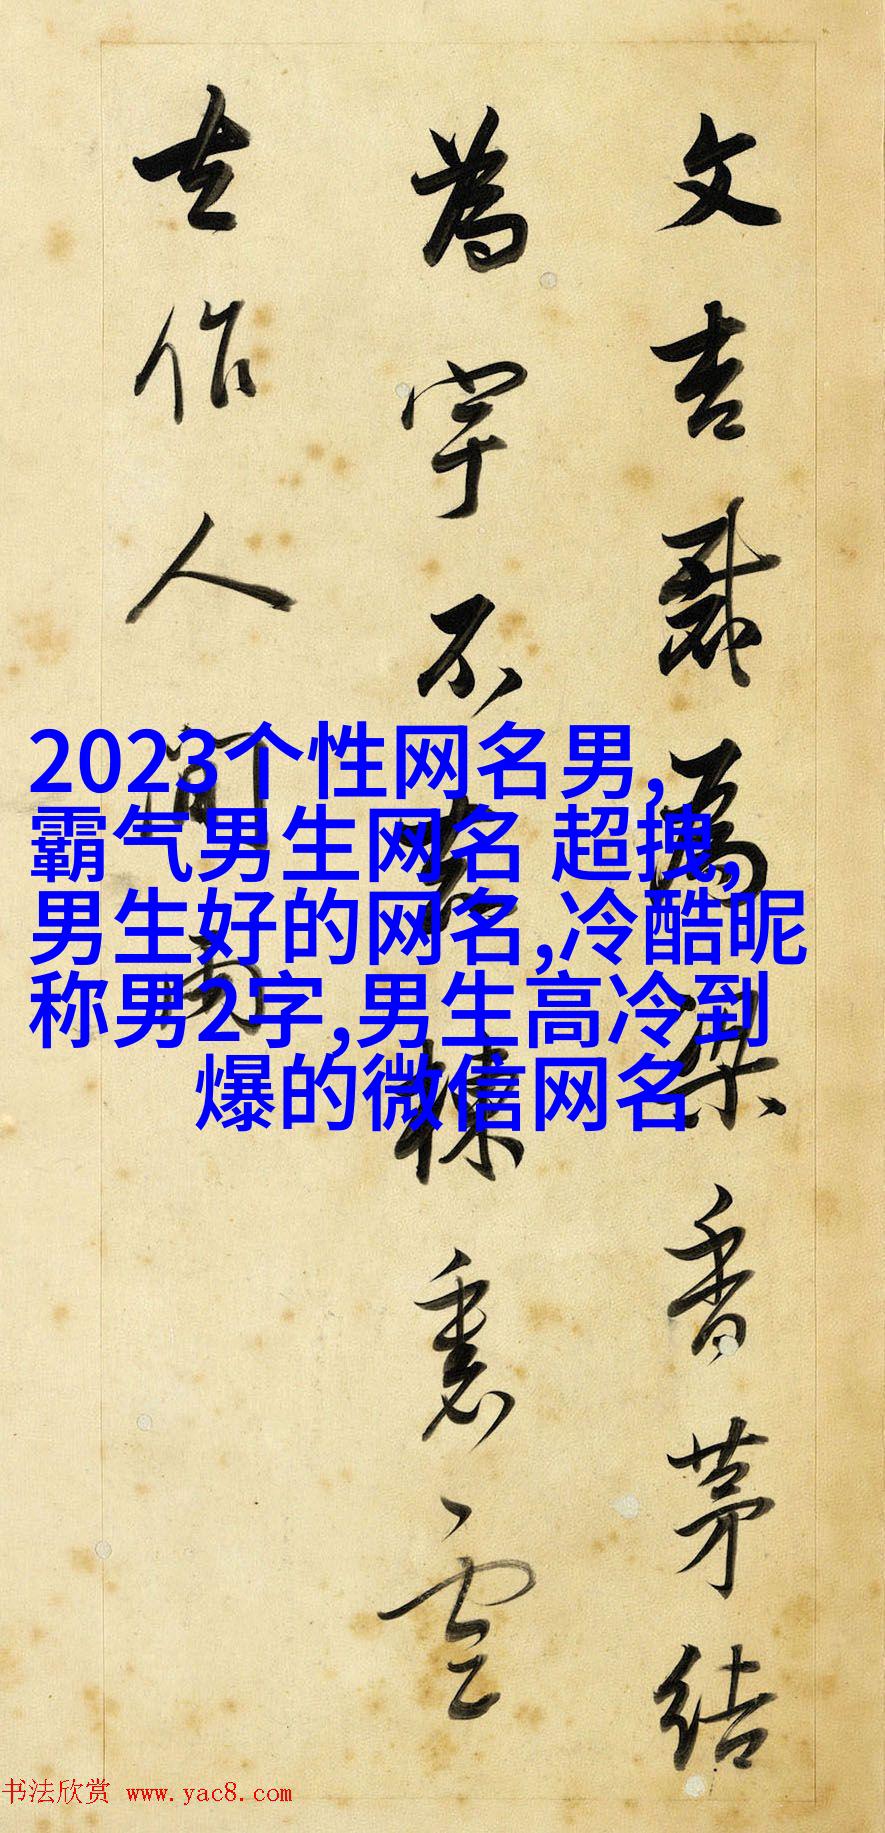 文杏裁為梁香茅結
為宇不知棟裏雲
去作人間雨
2023个性网名男,
霸气男生网名 超拽,
男生好的网名,冷酷昵
称男2字,男生高冷到
爆的微信网名
书法欣赏 www.yac8.com